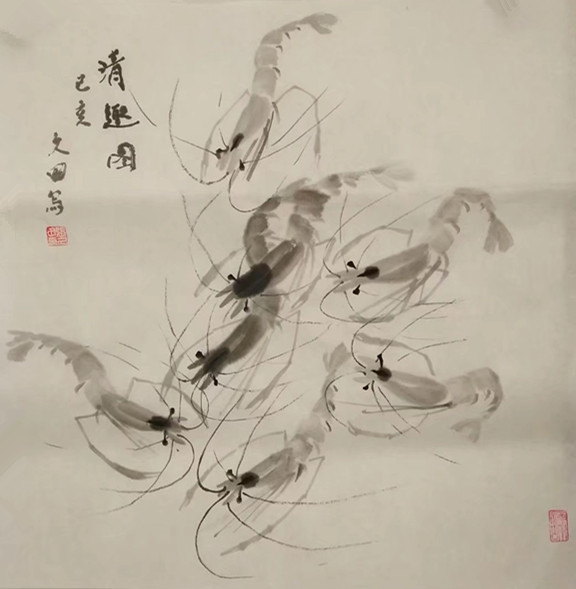 清趣图
己亥
文田写